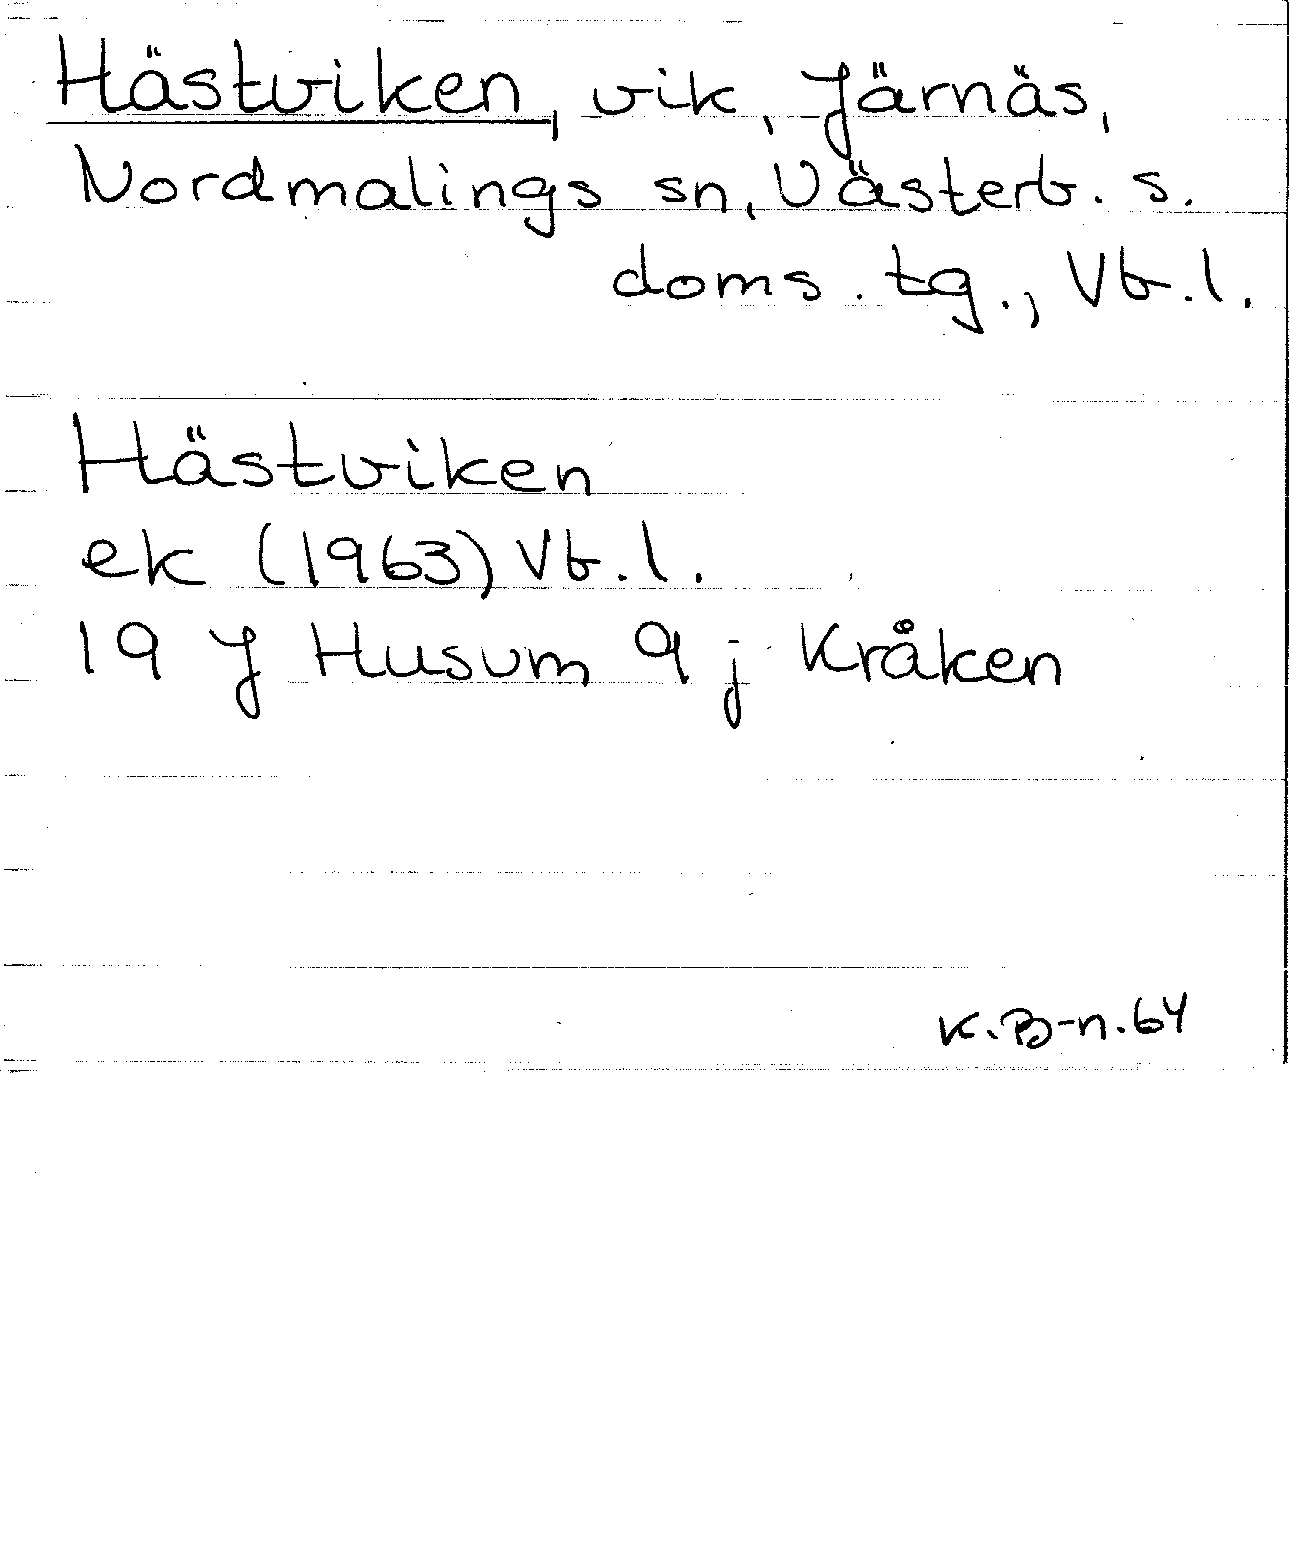 Hästviken, vik, Järnäs,
Nordmalings sn, Västerb. s.
doms. tg., Vb. l.
Hästviken
ek (1963) Vb. l.
19 J Husum 9 j Kråken
K. B-n. 64